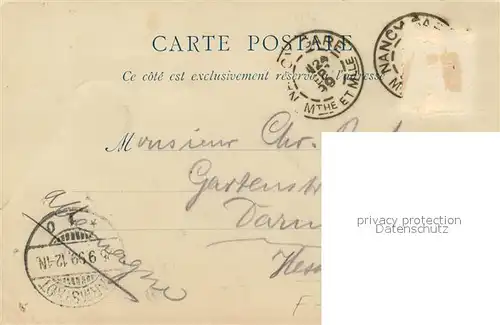 CARTE POSTALE
Ce côté est exclusivement réservé à l'adresse
GARE
MTHE ET MLLE
NANCY GARE
Monsieur Chr.
Gartenstr
Darm
Hess
Allemagne
9.98.12-1N
DARMSTADT
privacy protection
Datenschutz
F